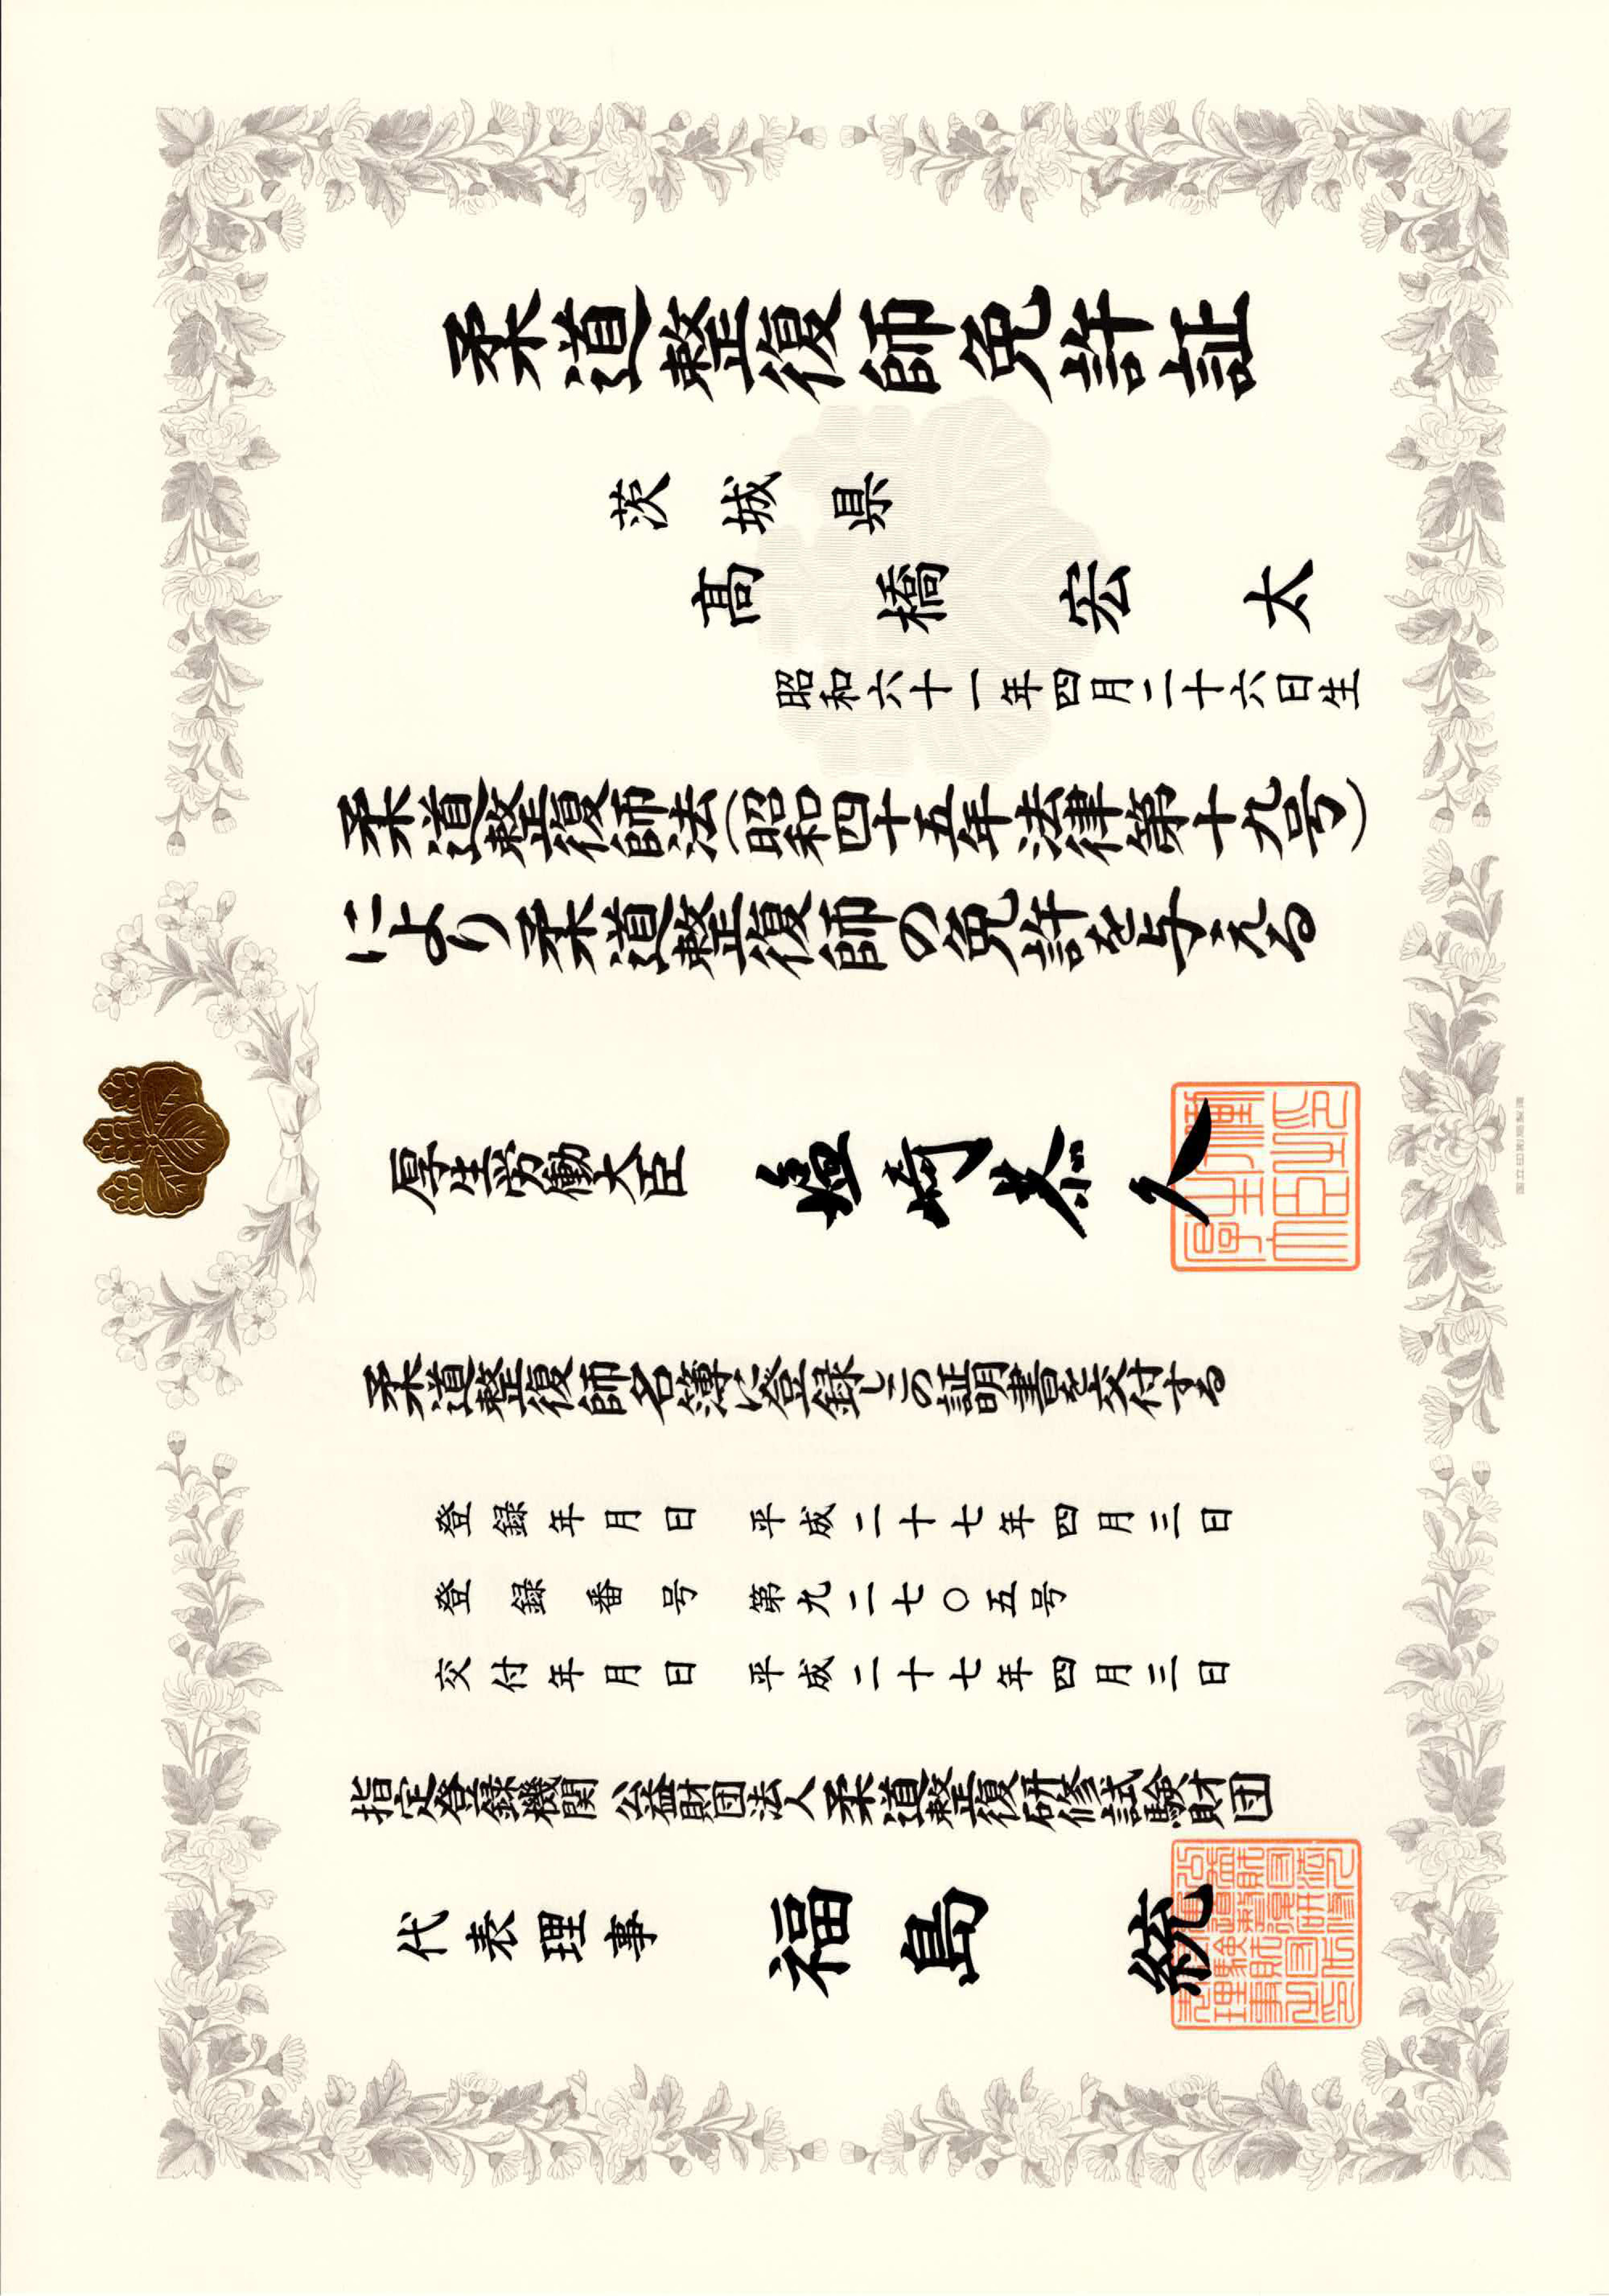 柔道整復師免許証
茨城県
髙橋宏太
昭和六十一年四月二十六日生
柔道整復師法(昭和四十五年法律第十九号)
により柔道整復師の免許を与える
厚生労働大臣 塩崎恭久
柔道整復師名簿に登録しこの証明書を交付する
登録年月日 平成二十七年四月三日
登録番号 第九二七〇五号
交付年月日 平成二十七年四月三日
指定登録機関 公益財団法人柔道整復研修試験財団
代表理事 福島 統